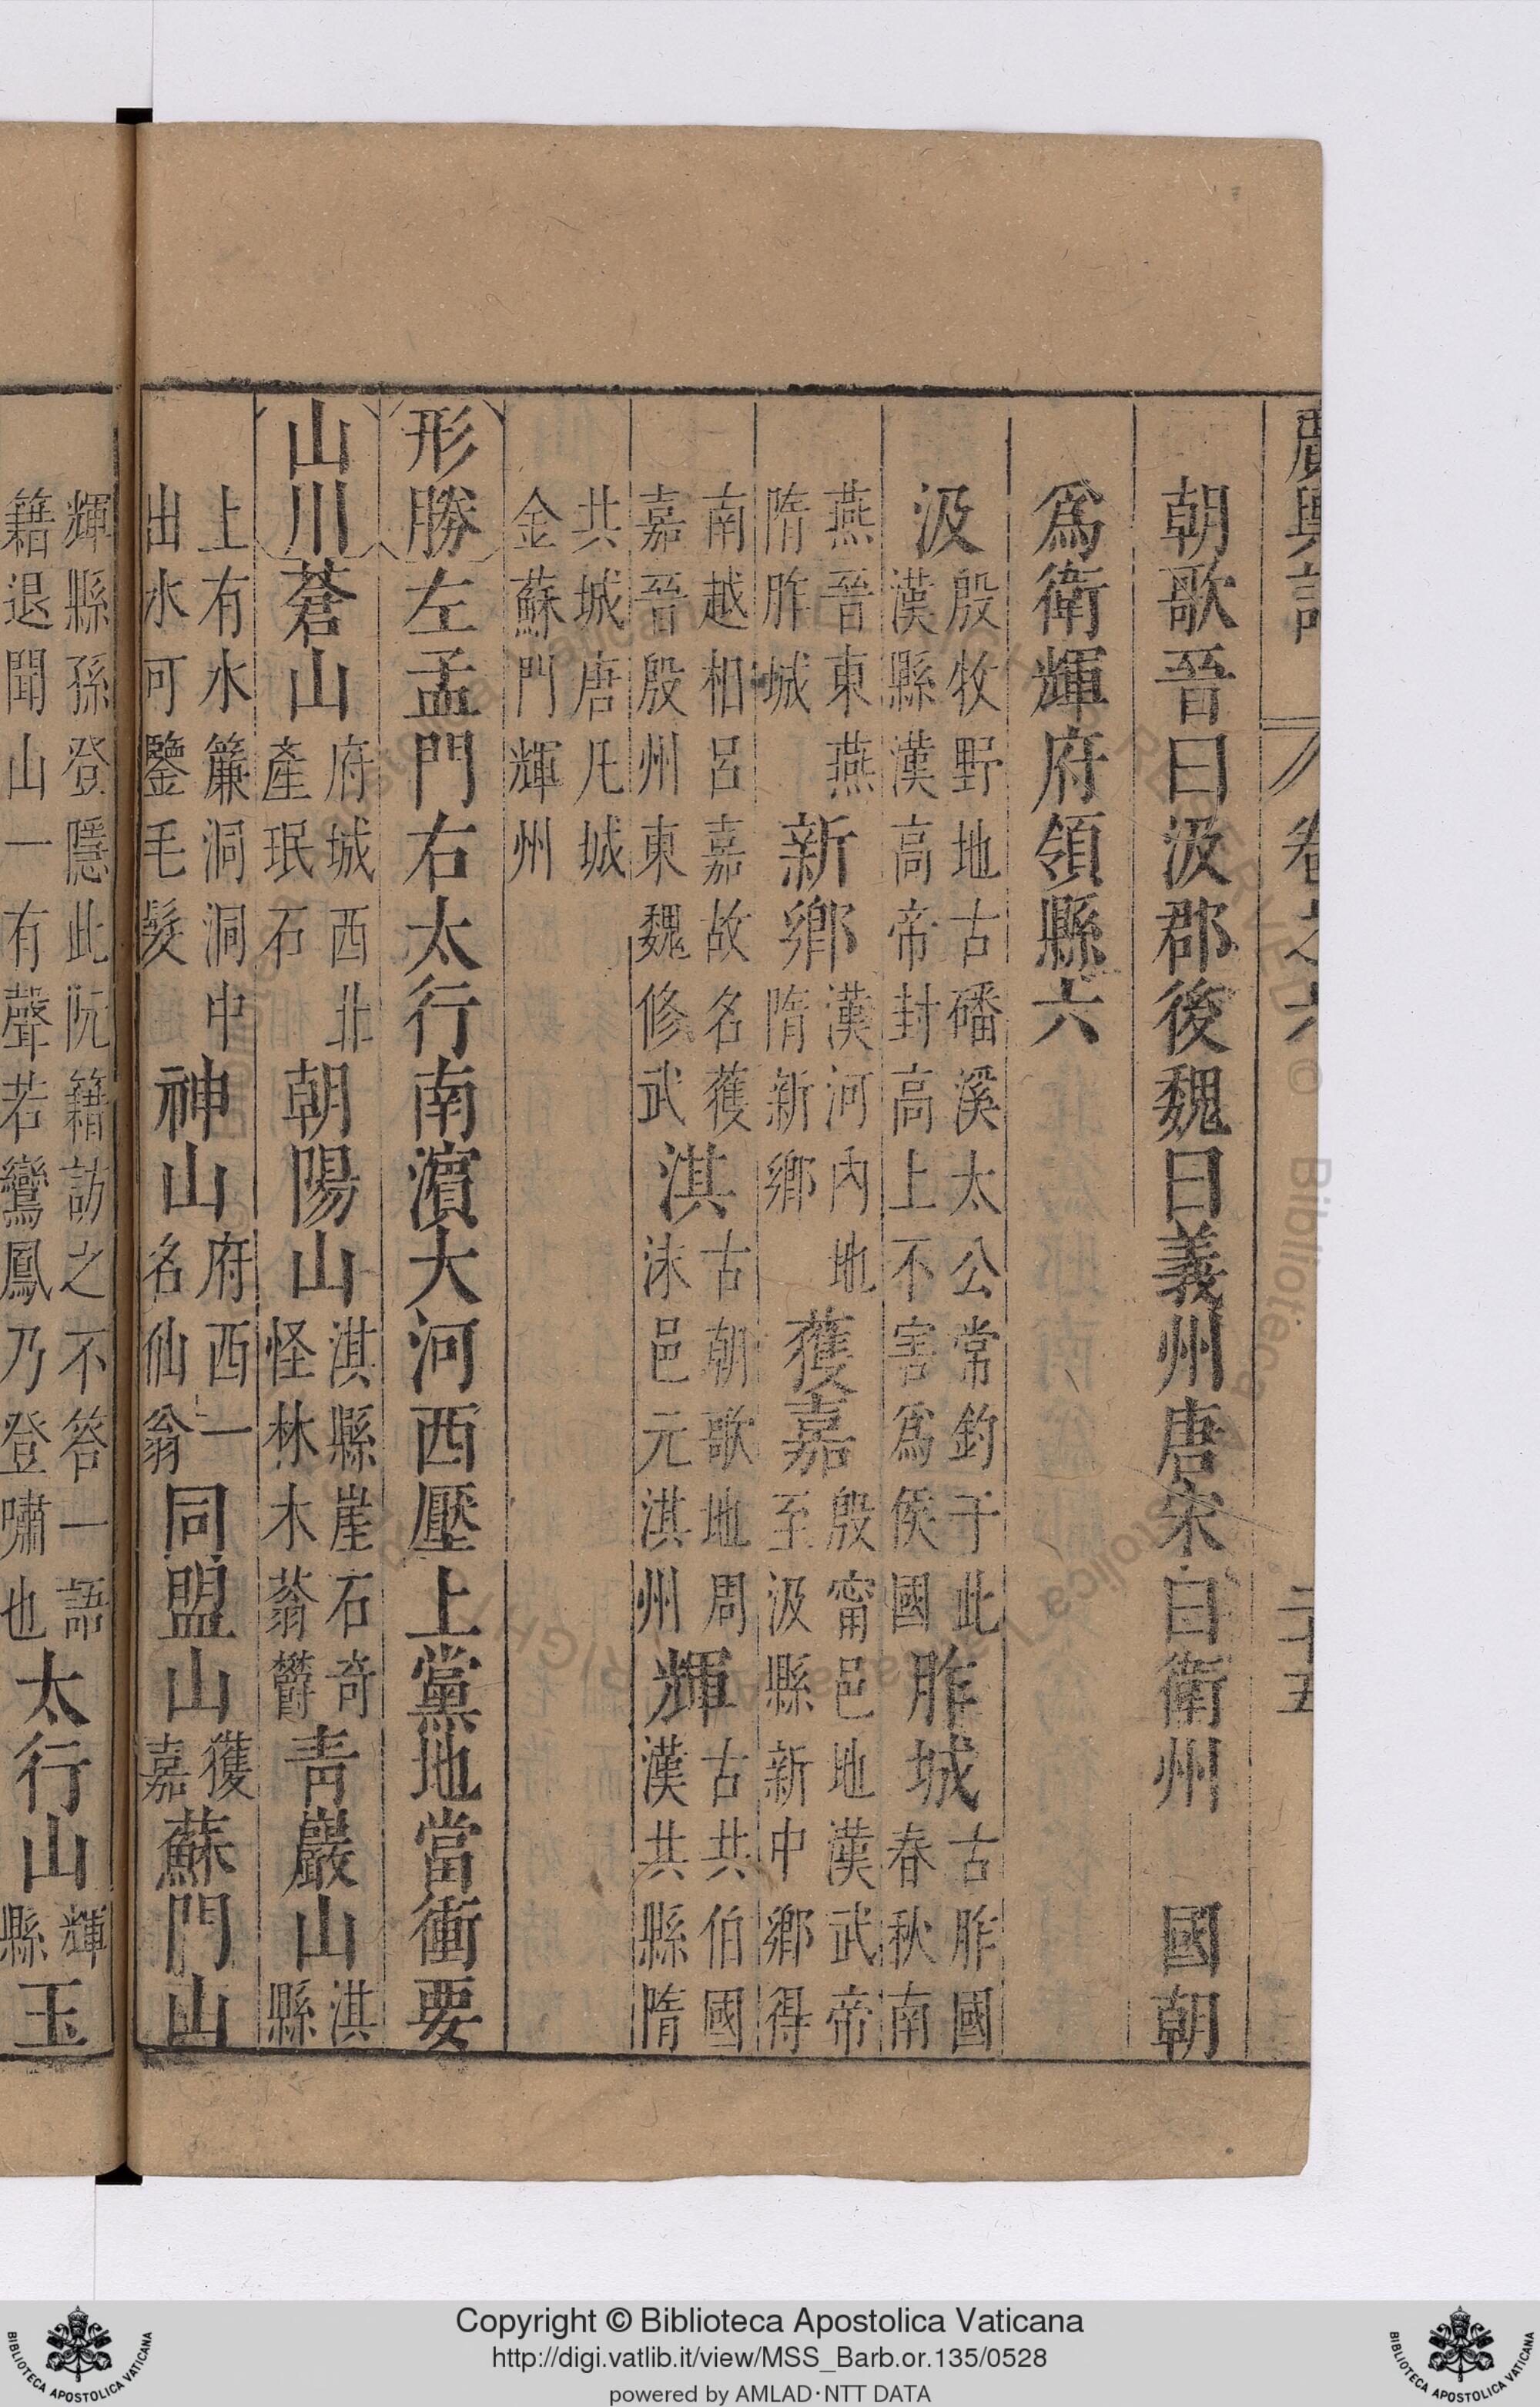 廣輿記 卷之六 二十五
朝歌晉曰汲郡後魏曰義州唐宋曰衛州 國朝
爲衛輝府領縣六
汲 殷牧野地古磻溪太公常釣于此
漢縣漢高帝封高上不害爲侯國
胙城 古胙國
春秋南
燕晉東燕
隋胙城
新鄉 漢河內地
隋新鄉
獲嘉 殷甯邑地漢武帝
至汲縣新中鄉得
南越相呂嘉故名獲
嘉晉殷州東魏修武
淇 古朝歌地周
沬邑元淇州
輝 古共伯國
漢共縣隋
共城唐凡城
金蘇門輝州
形勝 左孟門右太行南濱大河西壓上黨地當衝要
山川 蒼山 府城西北
產珉石
朝陽山 淇縣崖石奇
怪林木蓊欝
青巖山 淇
縣
上有水簾洞洞中
出水可鑒毛髮
神山 府西一
名仙翁
同盟山 獲
嘉
蘇門山
輝縣孫登隱此阮籍訪之不答一語
籍退聞山一有聲若鸞鳳乃登嘯也
太行山 輝
縣
玉
Copyright © Biblioteca Apostolica Vaticana
http://digi.vatlib.it/view/MSS_Barb.or.135/0528
powered by AMLAD·NTT DATA
BIBLIOTECA APOSTOLICA VATICANA
BIBLIOTECA APOSTOLICA VATICANA